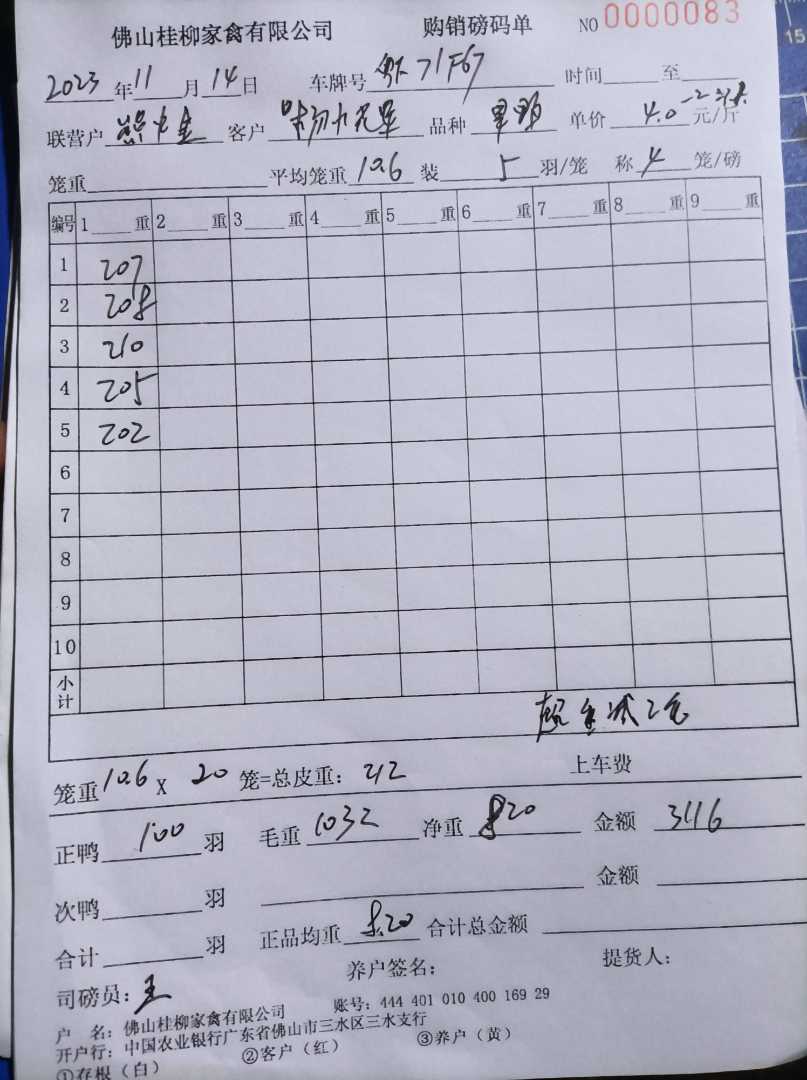 佛山桂柳家禽有限公司 购销磅码单 NO 0000083
2023 年 11 月 14 日 车牌号 71F67 时间 至
联营户 客户 品种 单价 4.0 元/斤
笼重 平均笼重 10.6 装 5 羽/笼 称 4 笼/磅
编号 1 重 2 重 3 重 4 重 5 重 6 重 7 重 8 重 9 重
1 207
2 208
3 210
4 205
5 202
6
7
8
9
10
小计
笼重 10.6 X 20 笼=总皮重: 212 上车费
正鸭 100 羽 毛重 1032 净重 820 金额 3116
次鸭 羽 金额
合计 羽 正品均重 8.20 合计总金额
司磅员: 王 养户签名: 提货人:
户 名: 佛山桂柳家禽有限公司 账号: 444 401 010 400 169 29
开户行: 中国农业银行广东省佛山市三水区三水支行
①存根(白) ②客户(红) ③养户(黄)